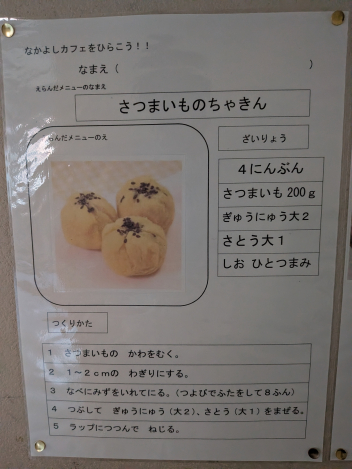 なかよしカフェをひらこう！！
なまえ（　　　　　　　　　　）
えらんだメニューのなまえ
さつまいものちゃきん
らんだメニューのえ
ざいりょう
４にんぶん
さつまいも 200ｇ
ぎゅうにゅう大２
さとう大１
しお ひとつまみ
つくりかた
１　さつまいもの　かわをむく。
２　１～２cmの　わぎりにする。
３　なべにみずをいれてにる。（つよびでふたをして８ふん）
４　つぶして　ぎゅうにゅう（大２）、さとう（大１）をまぜる。
５　ラップにつつんで　ねじる。